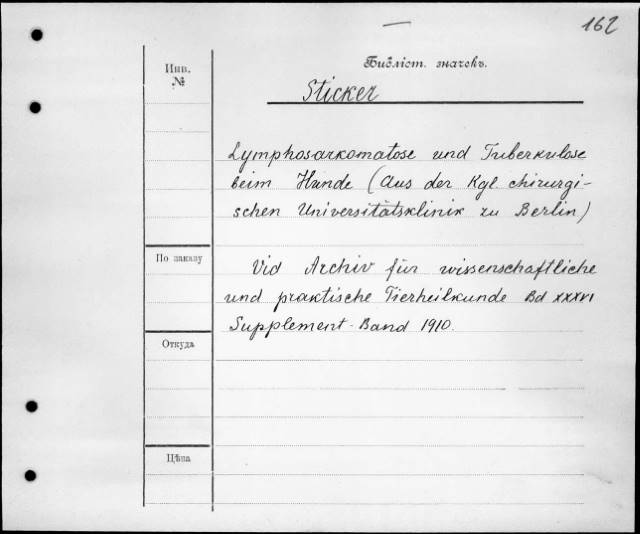 162
Инв.
№
Библіот. значекъ.
Sticker
Lymphosarkomatose und Tuberkulose
beim Hunde (Aus der Kgl. chirurgi-
schen Universitätsklinik zu Berlin)
По заказу
Vid Archiv für wissenschaftliche
und praktische Tierheilkunde Bd XXXVI
Supplement-Band 1910.
Откуда
Цѣна